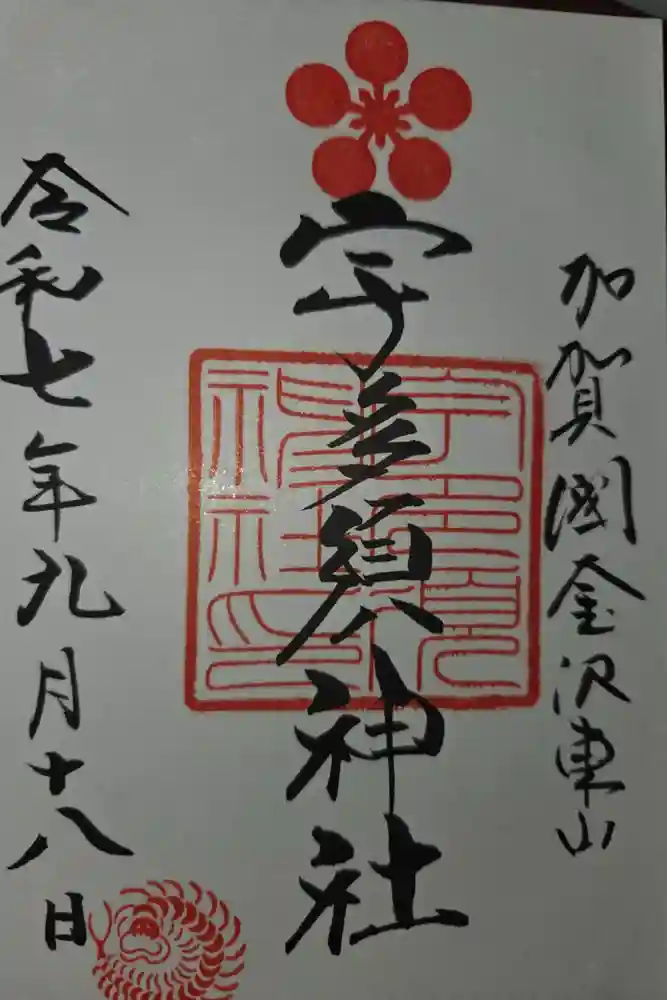 加賀國金沢東山
宇多須神社
令和七年九月十八日